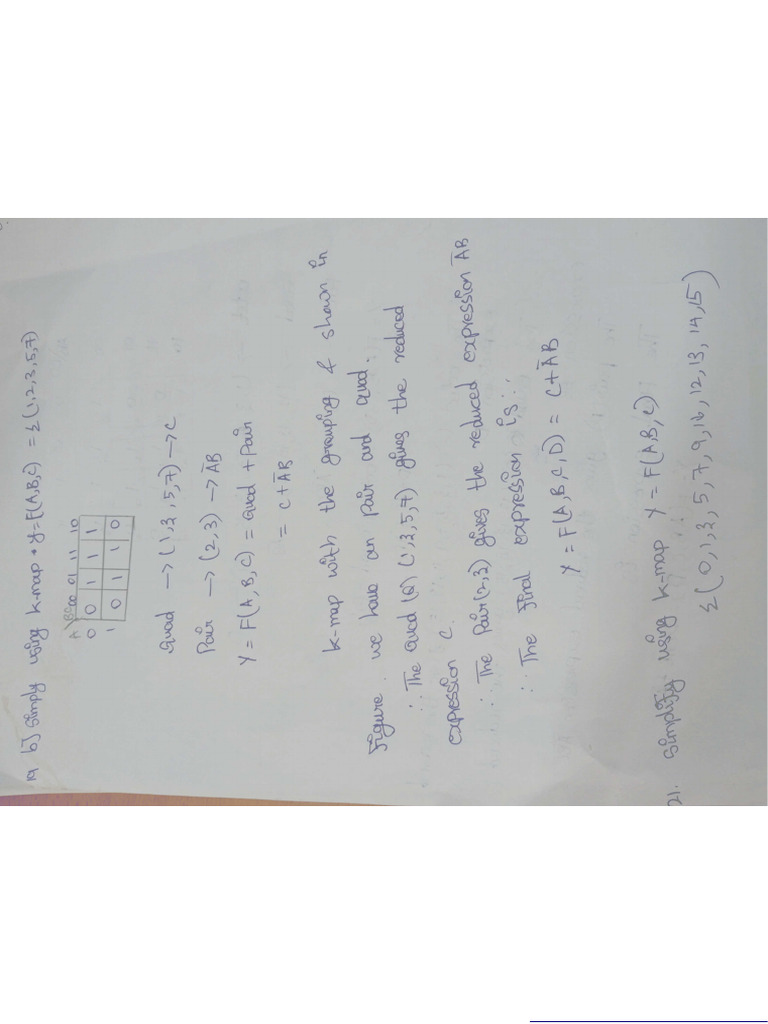 19 b] simply using k-map • y=F(A,B,C) = Σ(1,2,3,5,7)
A BC 00 01 11 10
0 0 1 1 1
1 0 1 1 0
Quad → (1,3,5,7) → C
Pair → (2,3) → A̅B
Y = F(A,B,C) = Quad + Pair
= C+A̅B
k-map with the grouping & shown in
figure. we have an pair and quad.
∴ The Quad (1,3,5,7) gives the reduced
expression C.
∴ The Pair(2,3) gives the reduced expression A̅B
∴ The final expression is:
Y = F(A,B,C,D) = C+A̅B
21. Simplify using k-map Y = F(A,B,C)
Σ(0,1,3,5,7,9,10,12,13,14,15)